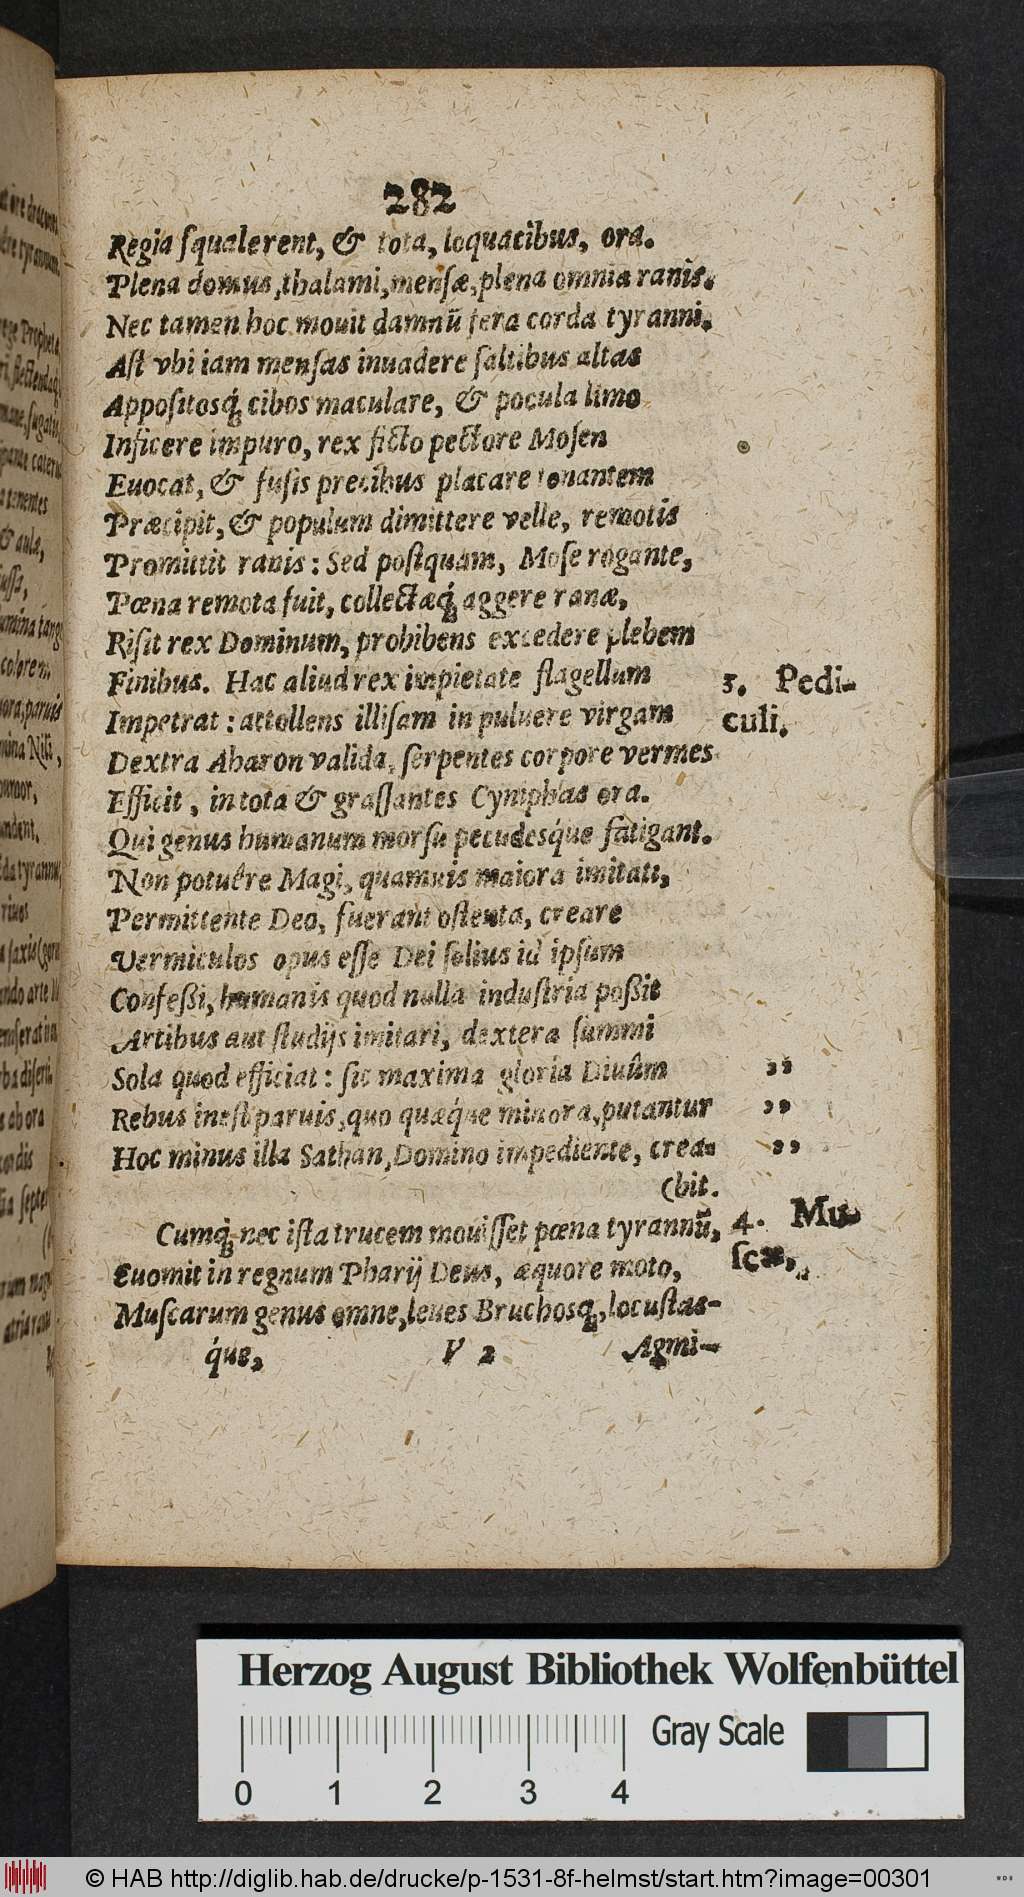 282
Regia ſqualerent, & tota, loquacibus, ora.
Plena domus, thalami, menſæ, plena omnia ranis.
Nec tamen hoc mouit damnũ fera corda tyranni.
Aſt vbi iam menſas inuadere ſaltibus altas
Appoſitosq́; cibos maculare, & pocula limo
Inficere impuro, rex ficto pectore Moſen
Euocat, & fuſis precibus placare tonantem
Præcipit, & populum dimittere velle, remotis
Promittit ranis: Sed poſtquam, Moſe rogante,
Pœna remota fuit, collectæq́; aggere ranæ,
Riſit rex Dominum, prohibens excedere plebem
Finibus. Hac aliud rex impietate flagellum
3. Pedi-
culi.
Impetrat: attollens illiſam in puluere virgam
Dextra Aharon valida, ſerpentes corpore vermes
Efficit, in tota & graſſantes Cyniphas ora.
Qui genus humanum morſu pecudesq́ue fatigant.
Non potuêre Magi, quamuis maiora imitati,
Permittente Deo, fuerant oſtenta, creare
Vermiculos opus eſſe Dei ſolius id ipſum
Confeßi, humanis quod nulla induſtria poßit
Artibus aut ſtudijs imitari, dextera ſummi
Sola quod efficiat: ſic maxima gloria Diuûm
Rebus ineſt paruis, quo quæq́ue minora, putantur
Hoc minus illa Sathan, Domino impediente, crea-
(bit.
,,
,,
,,
Cumq́; nec iſta trucem mouiſſet pœna tyrannũ,
4. Mu-
ſcæ,
Euomit in regnum Pharij Deus, æquore moto,
Muſcarum genus omne, leues Bruchosq́;, locuſtas-
q́ue, V 2 Agmi-
Herzog August Bibliothek Wolfenbüttel
Gray Scale
0 1 2 3 4
© HAB http://diglib.hab.de/drucke/p-1531-8f-helmst/start.htm?image=00301